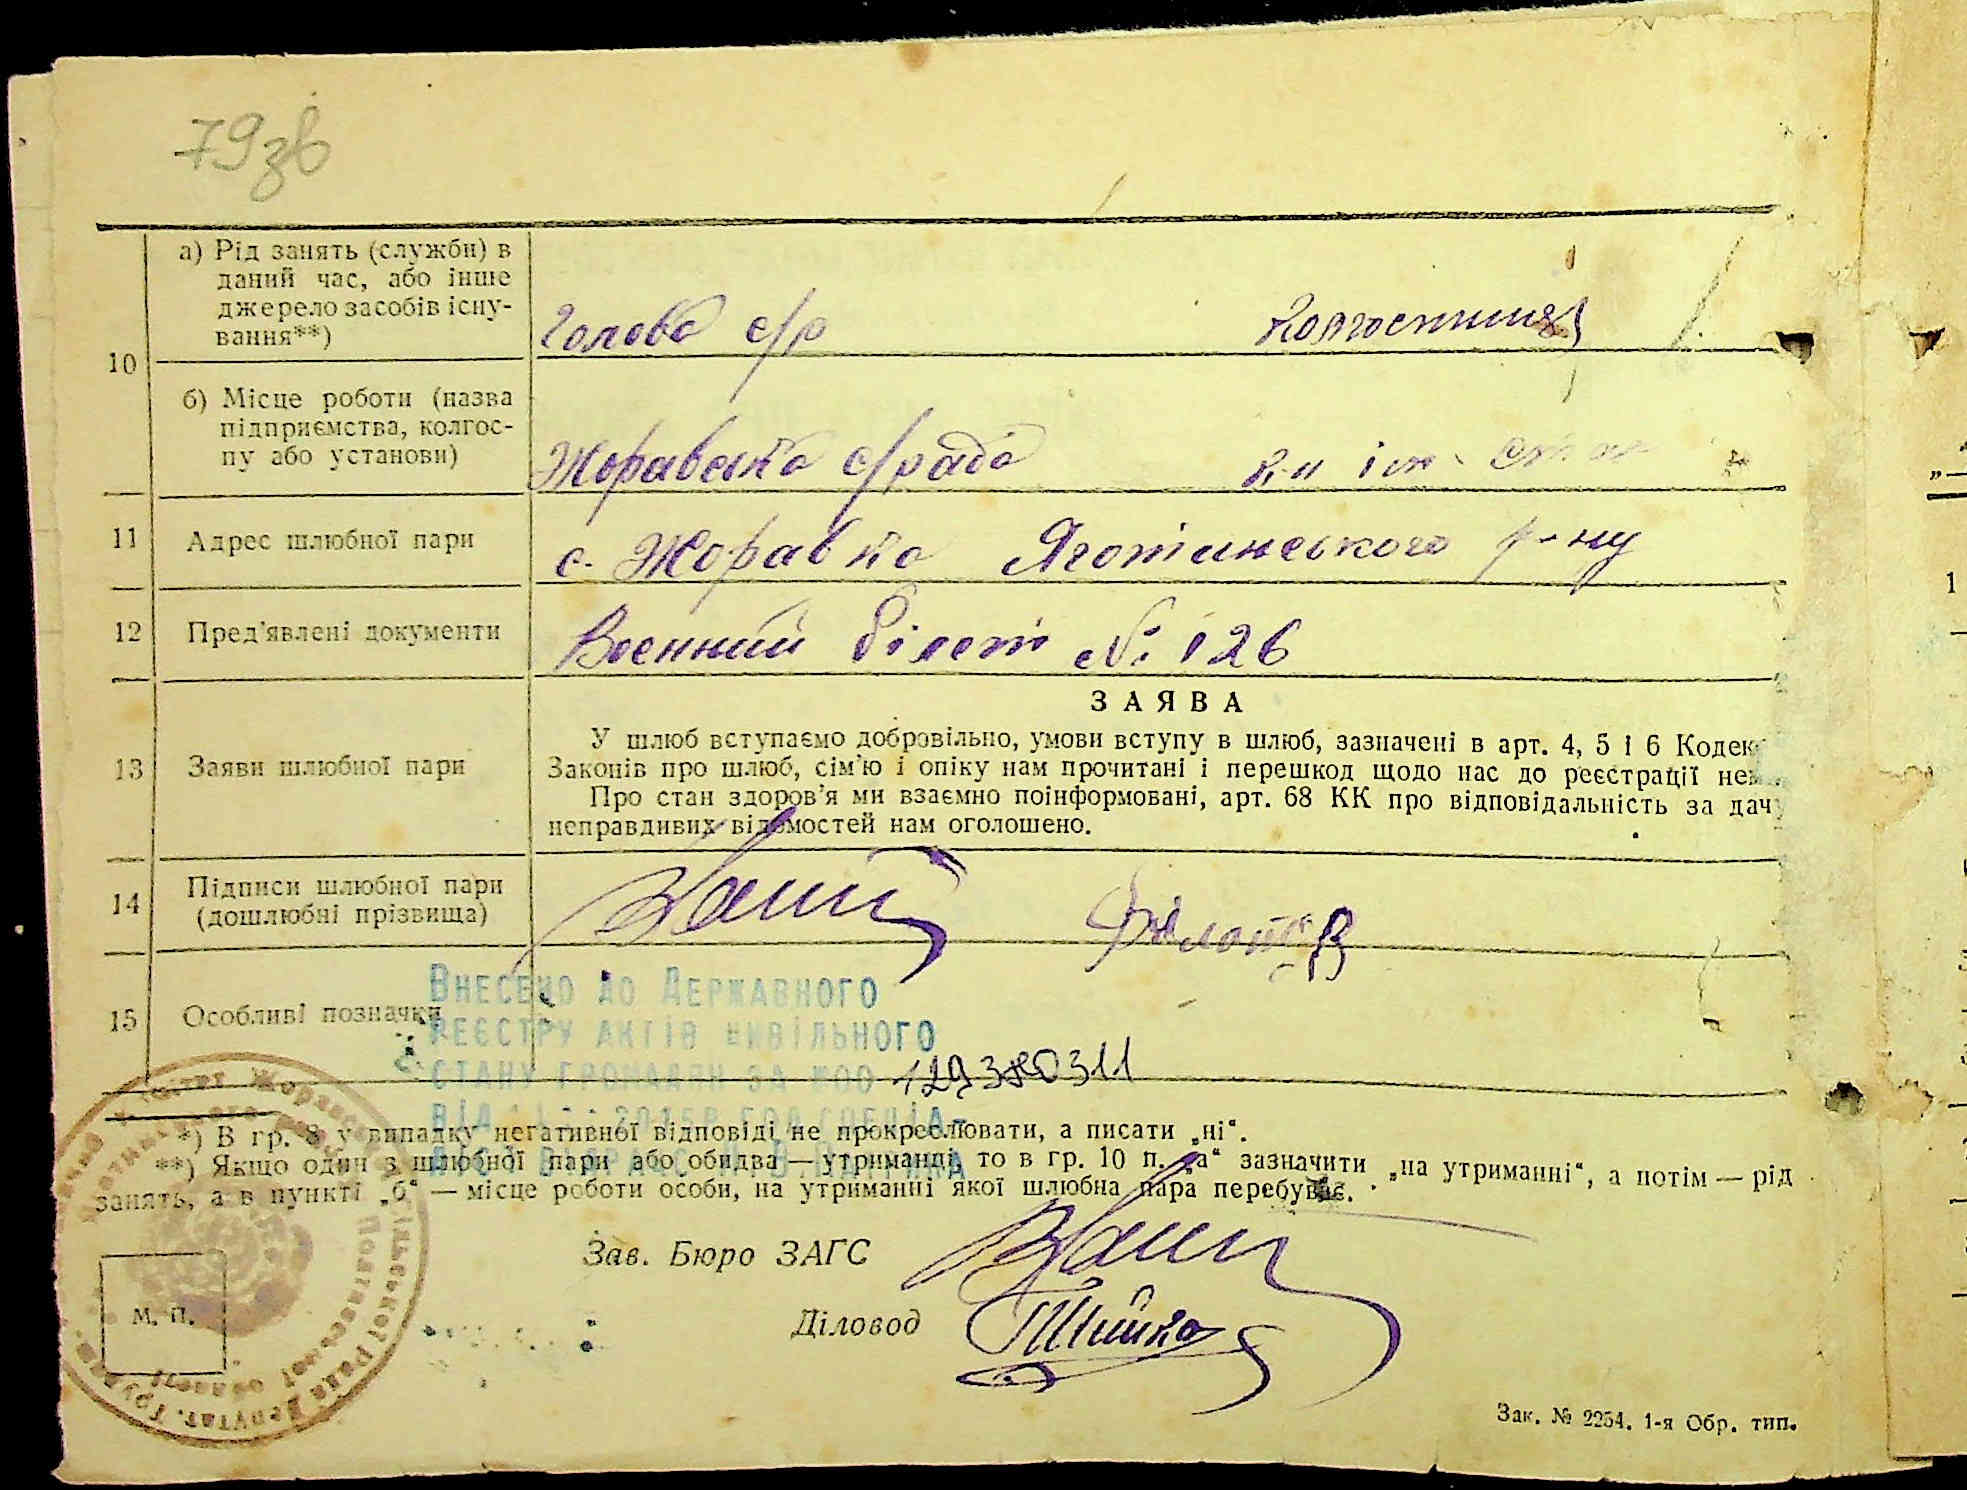 79зв
10
а) Рід занять (служби) в
даний час, або інше
джерело засобів існу-
вання**)
Голова с/р
колгоспниця
б) Місце роботи (назва
підприємства, колгос-
пу або установи)
Жоравська с/рада
к-п ім
11
Адрес шлюбної пари
с. Жоравка Яготинського р-ну
12
Пред'явлені документи
Воєнний білет № 126
13
Заяви шлюбної пари
ЗАЯВА
У шлюб вступаємо добровільно, умови вступу в шлюб, зазначені в арт. 4, 5 і 6 Кодек
Законів про шлюб, сім'ю і опіку нам прочитані і перешкод щодо нас до реєстрації нем
Про стан здоров'я ми взаємно поінформовані, арт. 68 КК про відповідальність за дач
неправдивих відомостей нам оголошено.
14
Підписи шлюбної пари
(дошлюбні прізвища)
15
Особливі позначки
Внесено до Державного
реєстру актів цивільного
стану громадян за №00
*) В гр. 8 у випадку негативної відповіді не прокреслювати, а писати „ні“.
**) Якщо один з шлюбної пари або обидва — утриманці, то в гр. 10 п. „а“ зазначити „на утриманні“, а потім — рід
занять, а в пункті „б“ — місце роботи особи, на утриманні якої шлюбна пара перебуває.
Зав. Бюро ЗАГС
Діловод
М. П.
Зак. № 2254. 1-я Обр. тип.